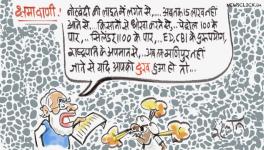 NEWSCLICK.IN
क्षमावाणी!
नोटबंदी की लाइन में लगने से... अबतक 15 लाख नहीं
आने से... किसानों से धोखा करने से... पेट्रोल 100 के
पार,.. सिलेंडर 1100 के पार,.. ED, CBI के दुरुपयोग,
राष्ट्रपति के अपमान से,... अब तक मणिपुर नहीं
जाने से यदि आपको दुःख हुआ हो तो...